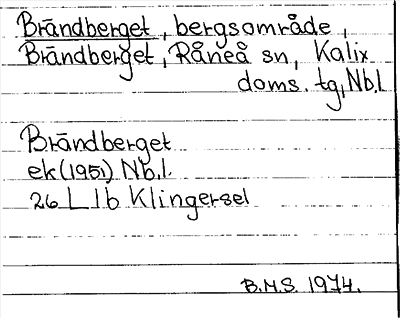 Brändberget, bergsområde,
Brändberget, Råneå sn, Kalix
doms. tg, Nb.l
Brändberget
ek (1951) Nb.l.
26 L 1b Klingersel
B.M.S. 1974.